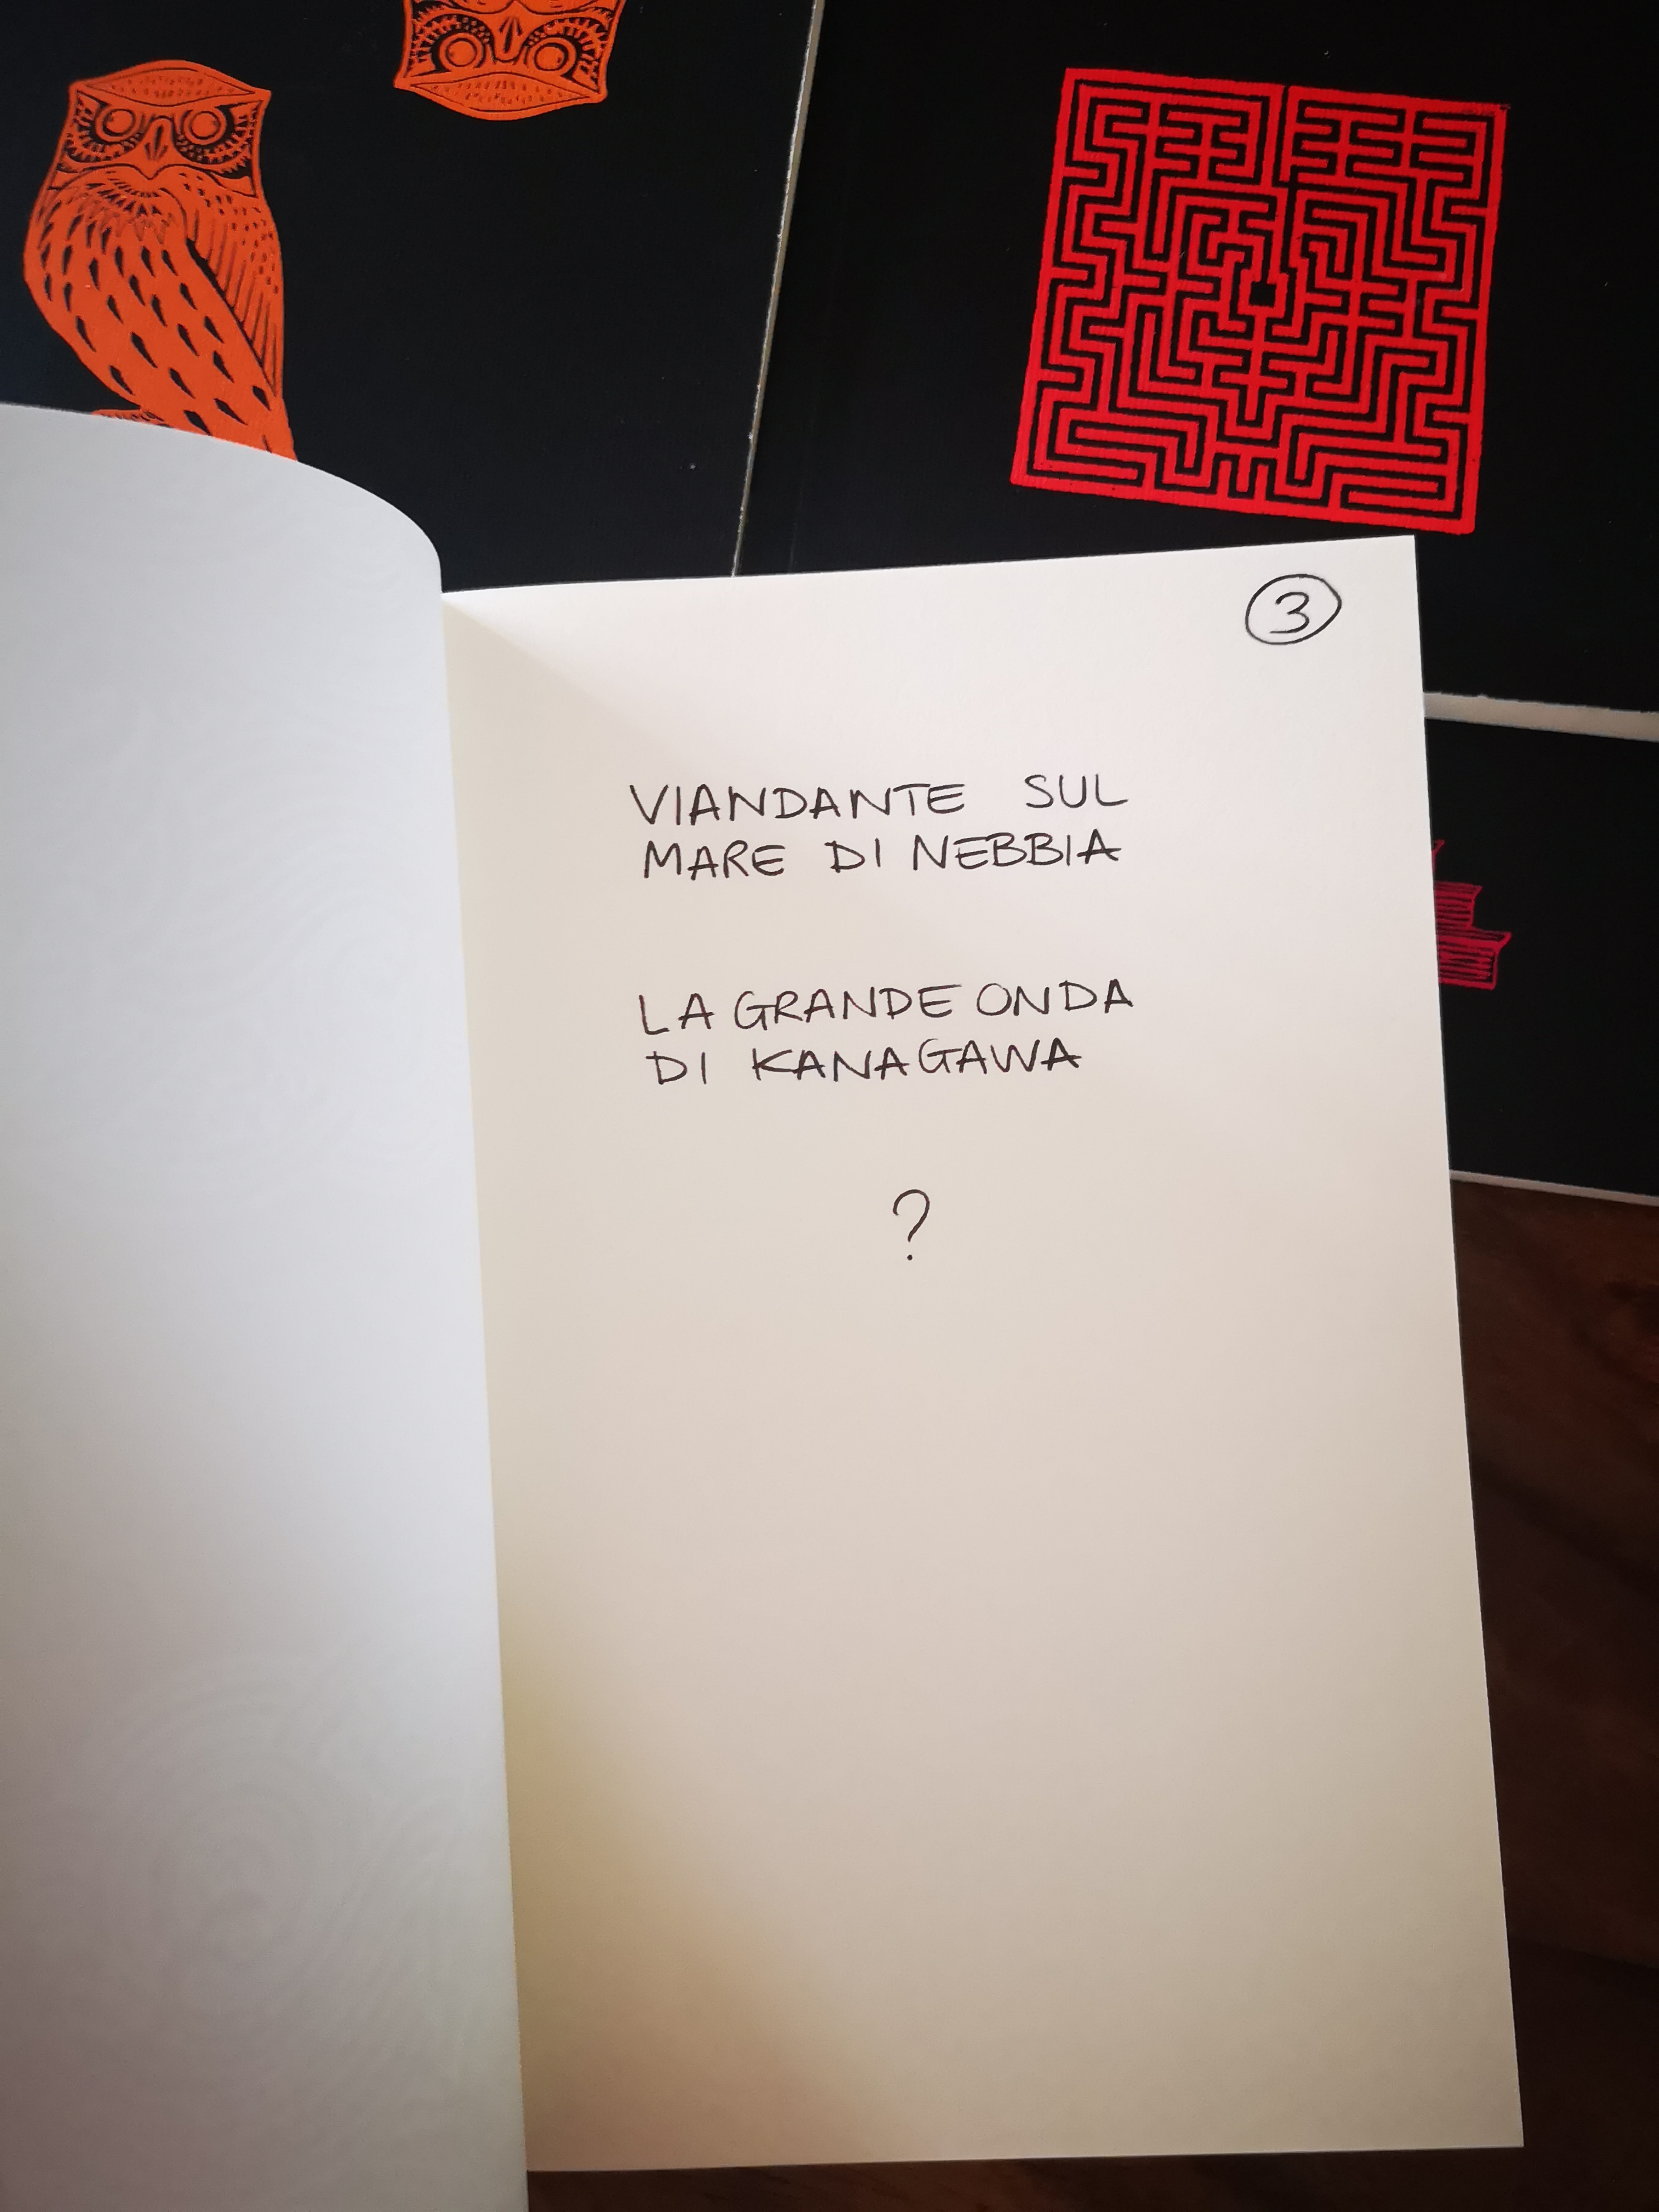 3
VIANDANTE SUL
MARE DI NEBBIA
LA GRANDE ONDA
DI KANAGAWA
?